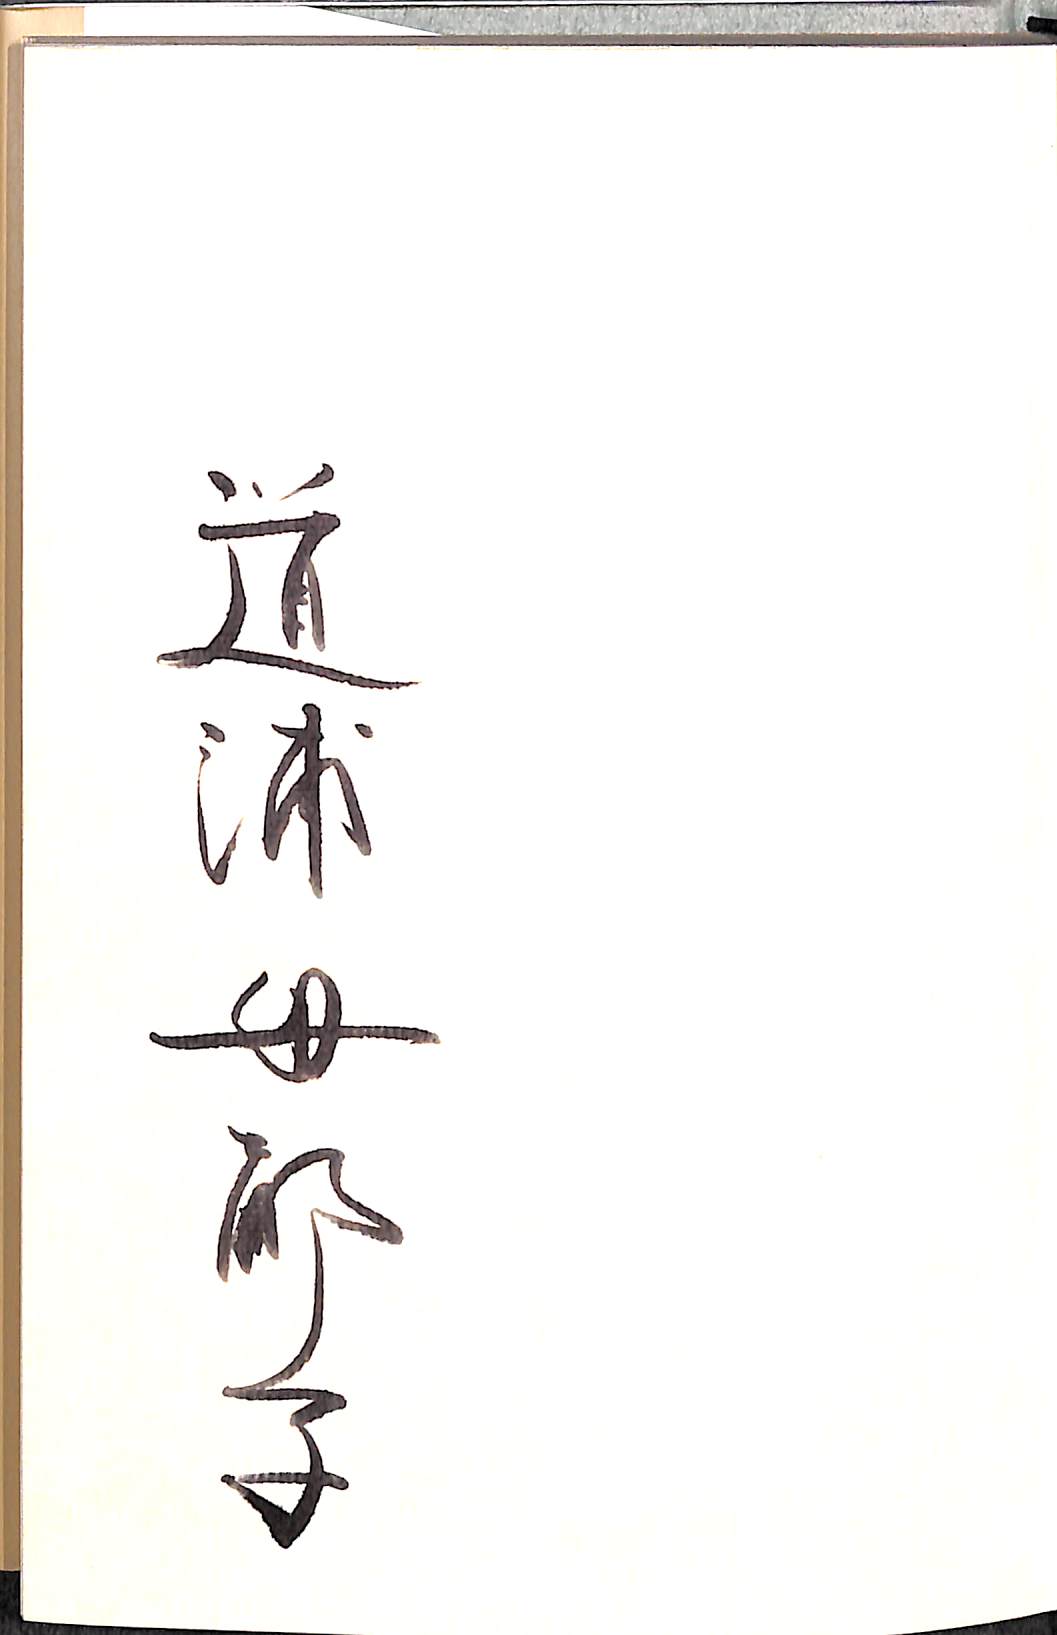 道浦母都子